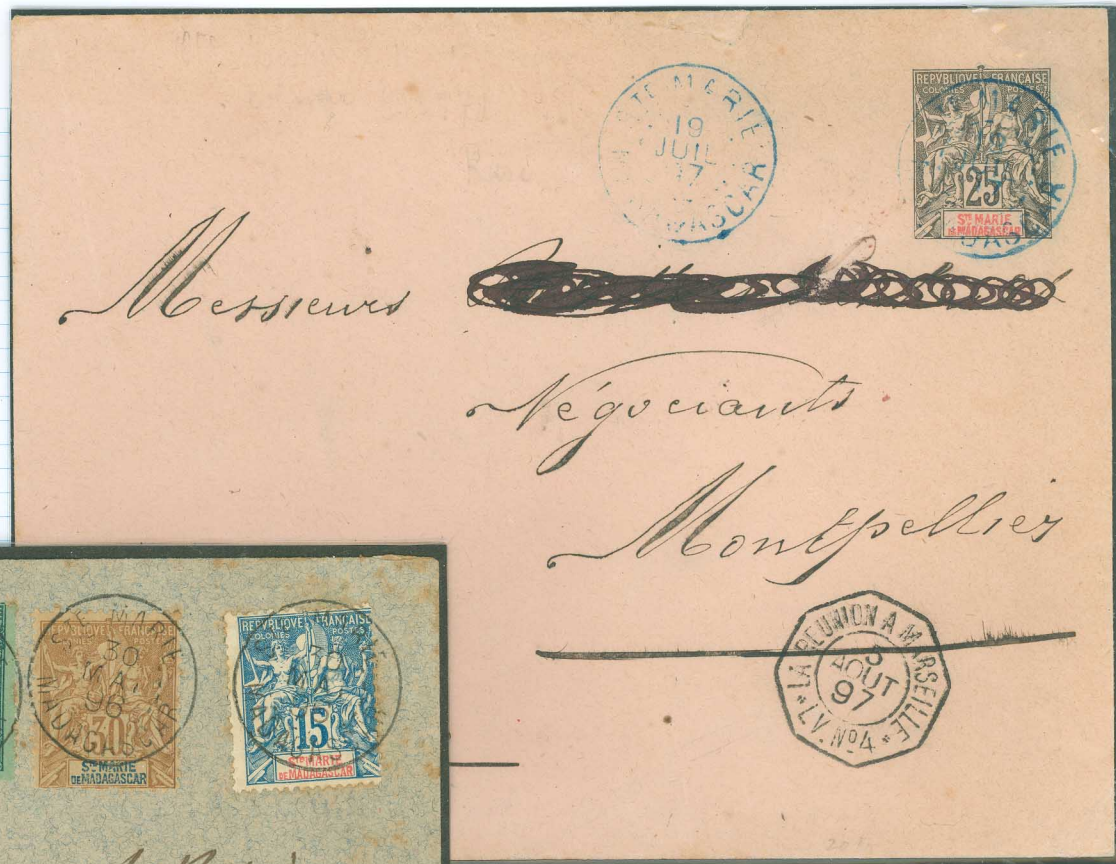 STE MARIE
19
JUIL
97
MADAGASCAR
REPVBLIQVE FRANÇAISE
COLONIES POSTES
25
STE MARIE
DE MADAGASCAR
Messieurs
Négociants
Montpellier
LA REUNION A MARSEILLE
5
AOUT
97
* L.V. Nº4 *
STE MARIE
30
MAI
96
MADAGASCAR
REPVBLIQVE FRANÇAISE
30
STE MARIE
DE MADAGASCAR
REPVBLIQVE FRANÇAISE
COLONIES POSTES
15
STE MARIE
DE MADAGASCAR